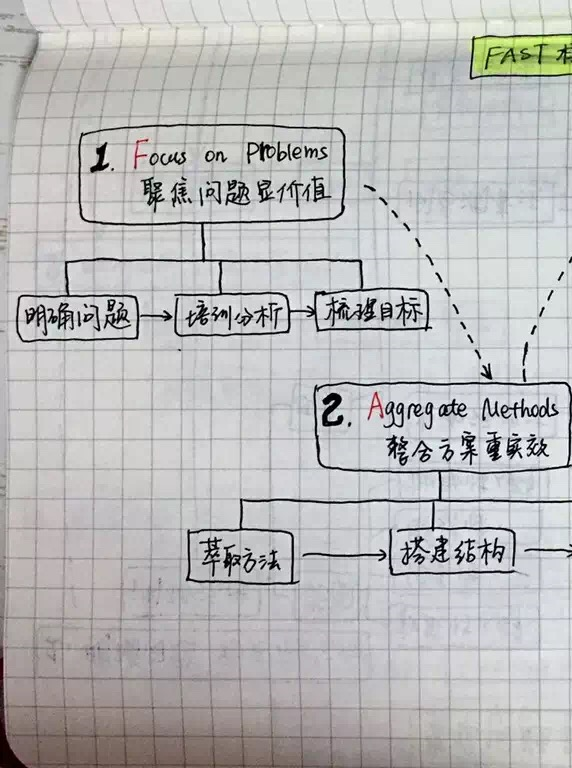 FAST
1. Focus on Problems
聚焦问题显价值
明确问题
培训分析
梳理目标
2. Aggregate Methods
整合方案重实效
萃取方法
搭建结构